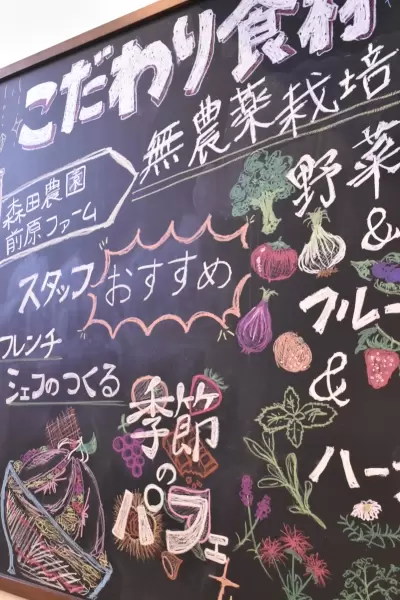 こだわり食材
無農薬栽培
森田農園
前原ファーム
野菜
&
スタッフおすすめ
フルー
&
フレンチ
シェフのつくる
季節
の
パフェ
ハー